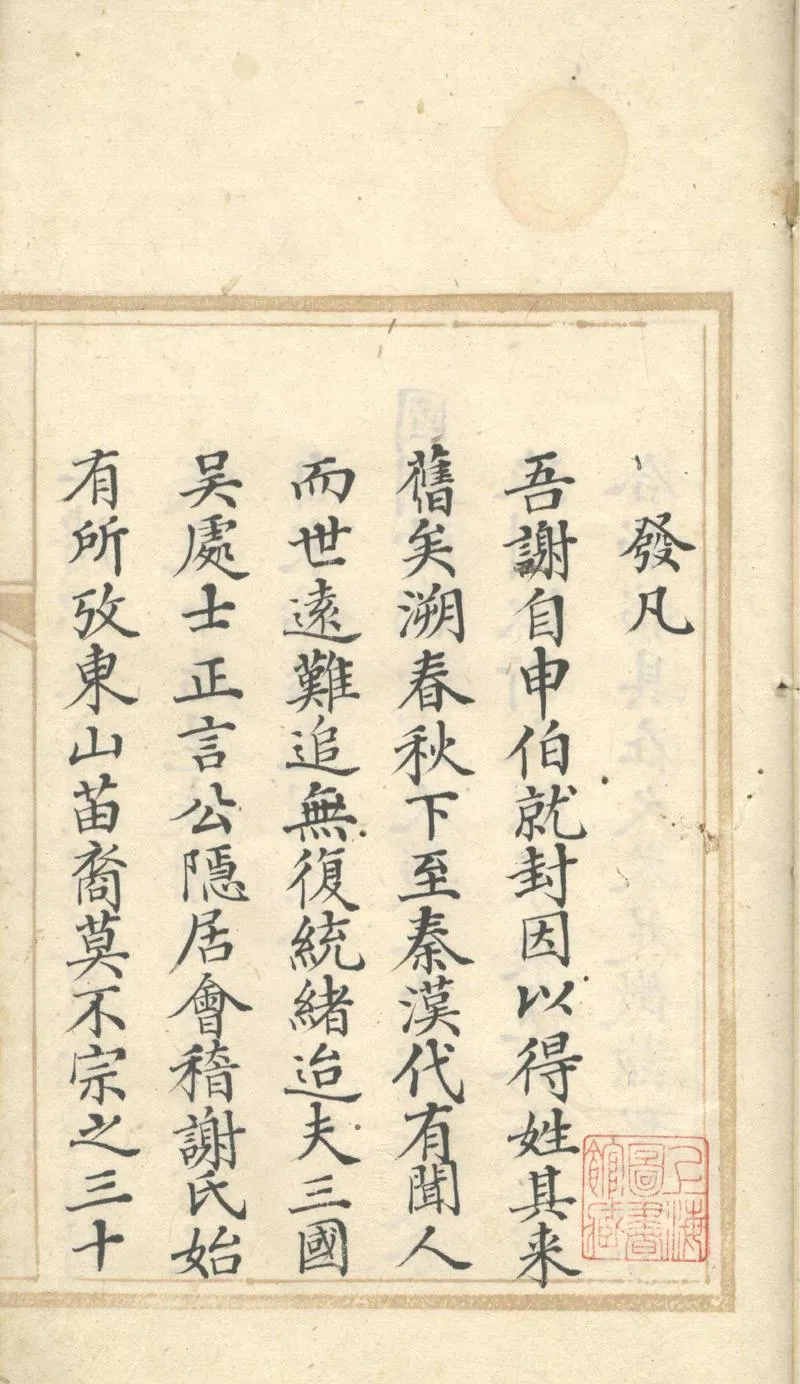 發凡
吾謝自申伯就封因以得姓其来
舊矣溯春秋下至秦漢代有聞人
而世遠難追無復統緒迨夫三國
吴處士正言公隱居會稽謝氏始
有所攷東山苗裔莫不宗之三十
上海圖書館藏